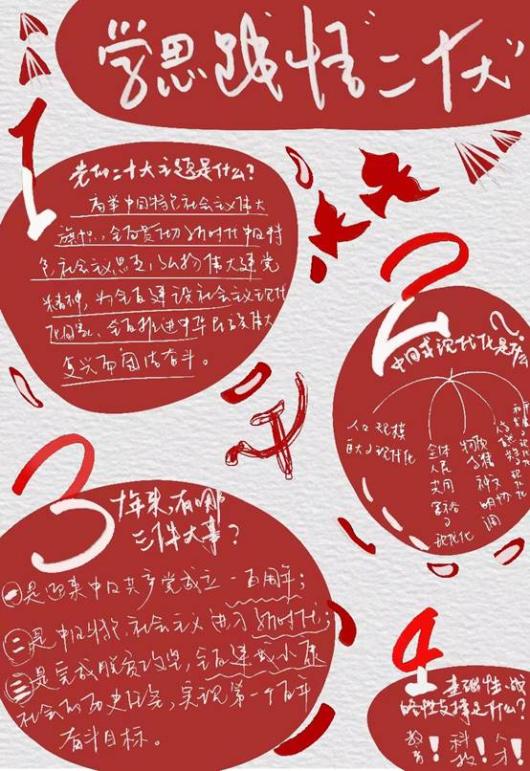 学思践悟“二十大”
1
党的二十大主题是什么？
高举中国特色社会主义伟大
旗帜，全面贯彻新时代中国特
色社会主义思想，弘扬伟大建党
精神，为全面建设社会主义现代
化国家、全面推进中华民族伟大
复兴而团结奋斗。
2
中国式现代化是什么？
人口规模
巨大的现代化
全体
人民
共同
富裕
的
现代化
物质
文明
精神
文明
协调
3
十年来，有哪
三件大事？
一是迎来中国共产党成立一百周年；
二是中国特色社会主义进入新时代；
三是完成脱贫攻坚，全面建成小康
社会的历史任务，实现第一个百年
奋斗目标。
4
基础性、战
略性支撑是什么？
教育！科技！人才！